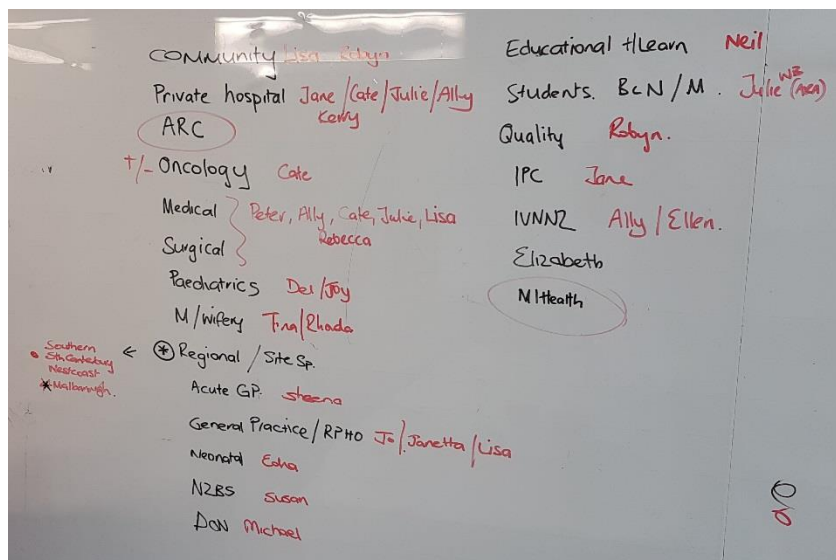 COMMUNITY Lisa Robyn
Private hospital Jane / Cate / Julie / Ally
Kerry
ARC
+/- Oncology Cate
Medical
Surgical
Peter, Ally, Cate, Julie, Lisa
Rebecca
Paediatrics Des/Joy
M/wifery Tina/Rhoda
* Regional / Site Sp.
Southern
Sth Canterbury
Westcoast
* Malborough.
Acute GP. Sheena
General Practice / RPHO Jo / Janetta / Lisa
Neonatal Edha
NZBS Susan
DON Michael
Educational + / Learn Neil
Students. BcN / M. Julie WB (ARA)
Quality Robyn.
IPC Jane
IVNNZ Ally / Ellen.
Elizabeth
M/Health